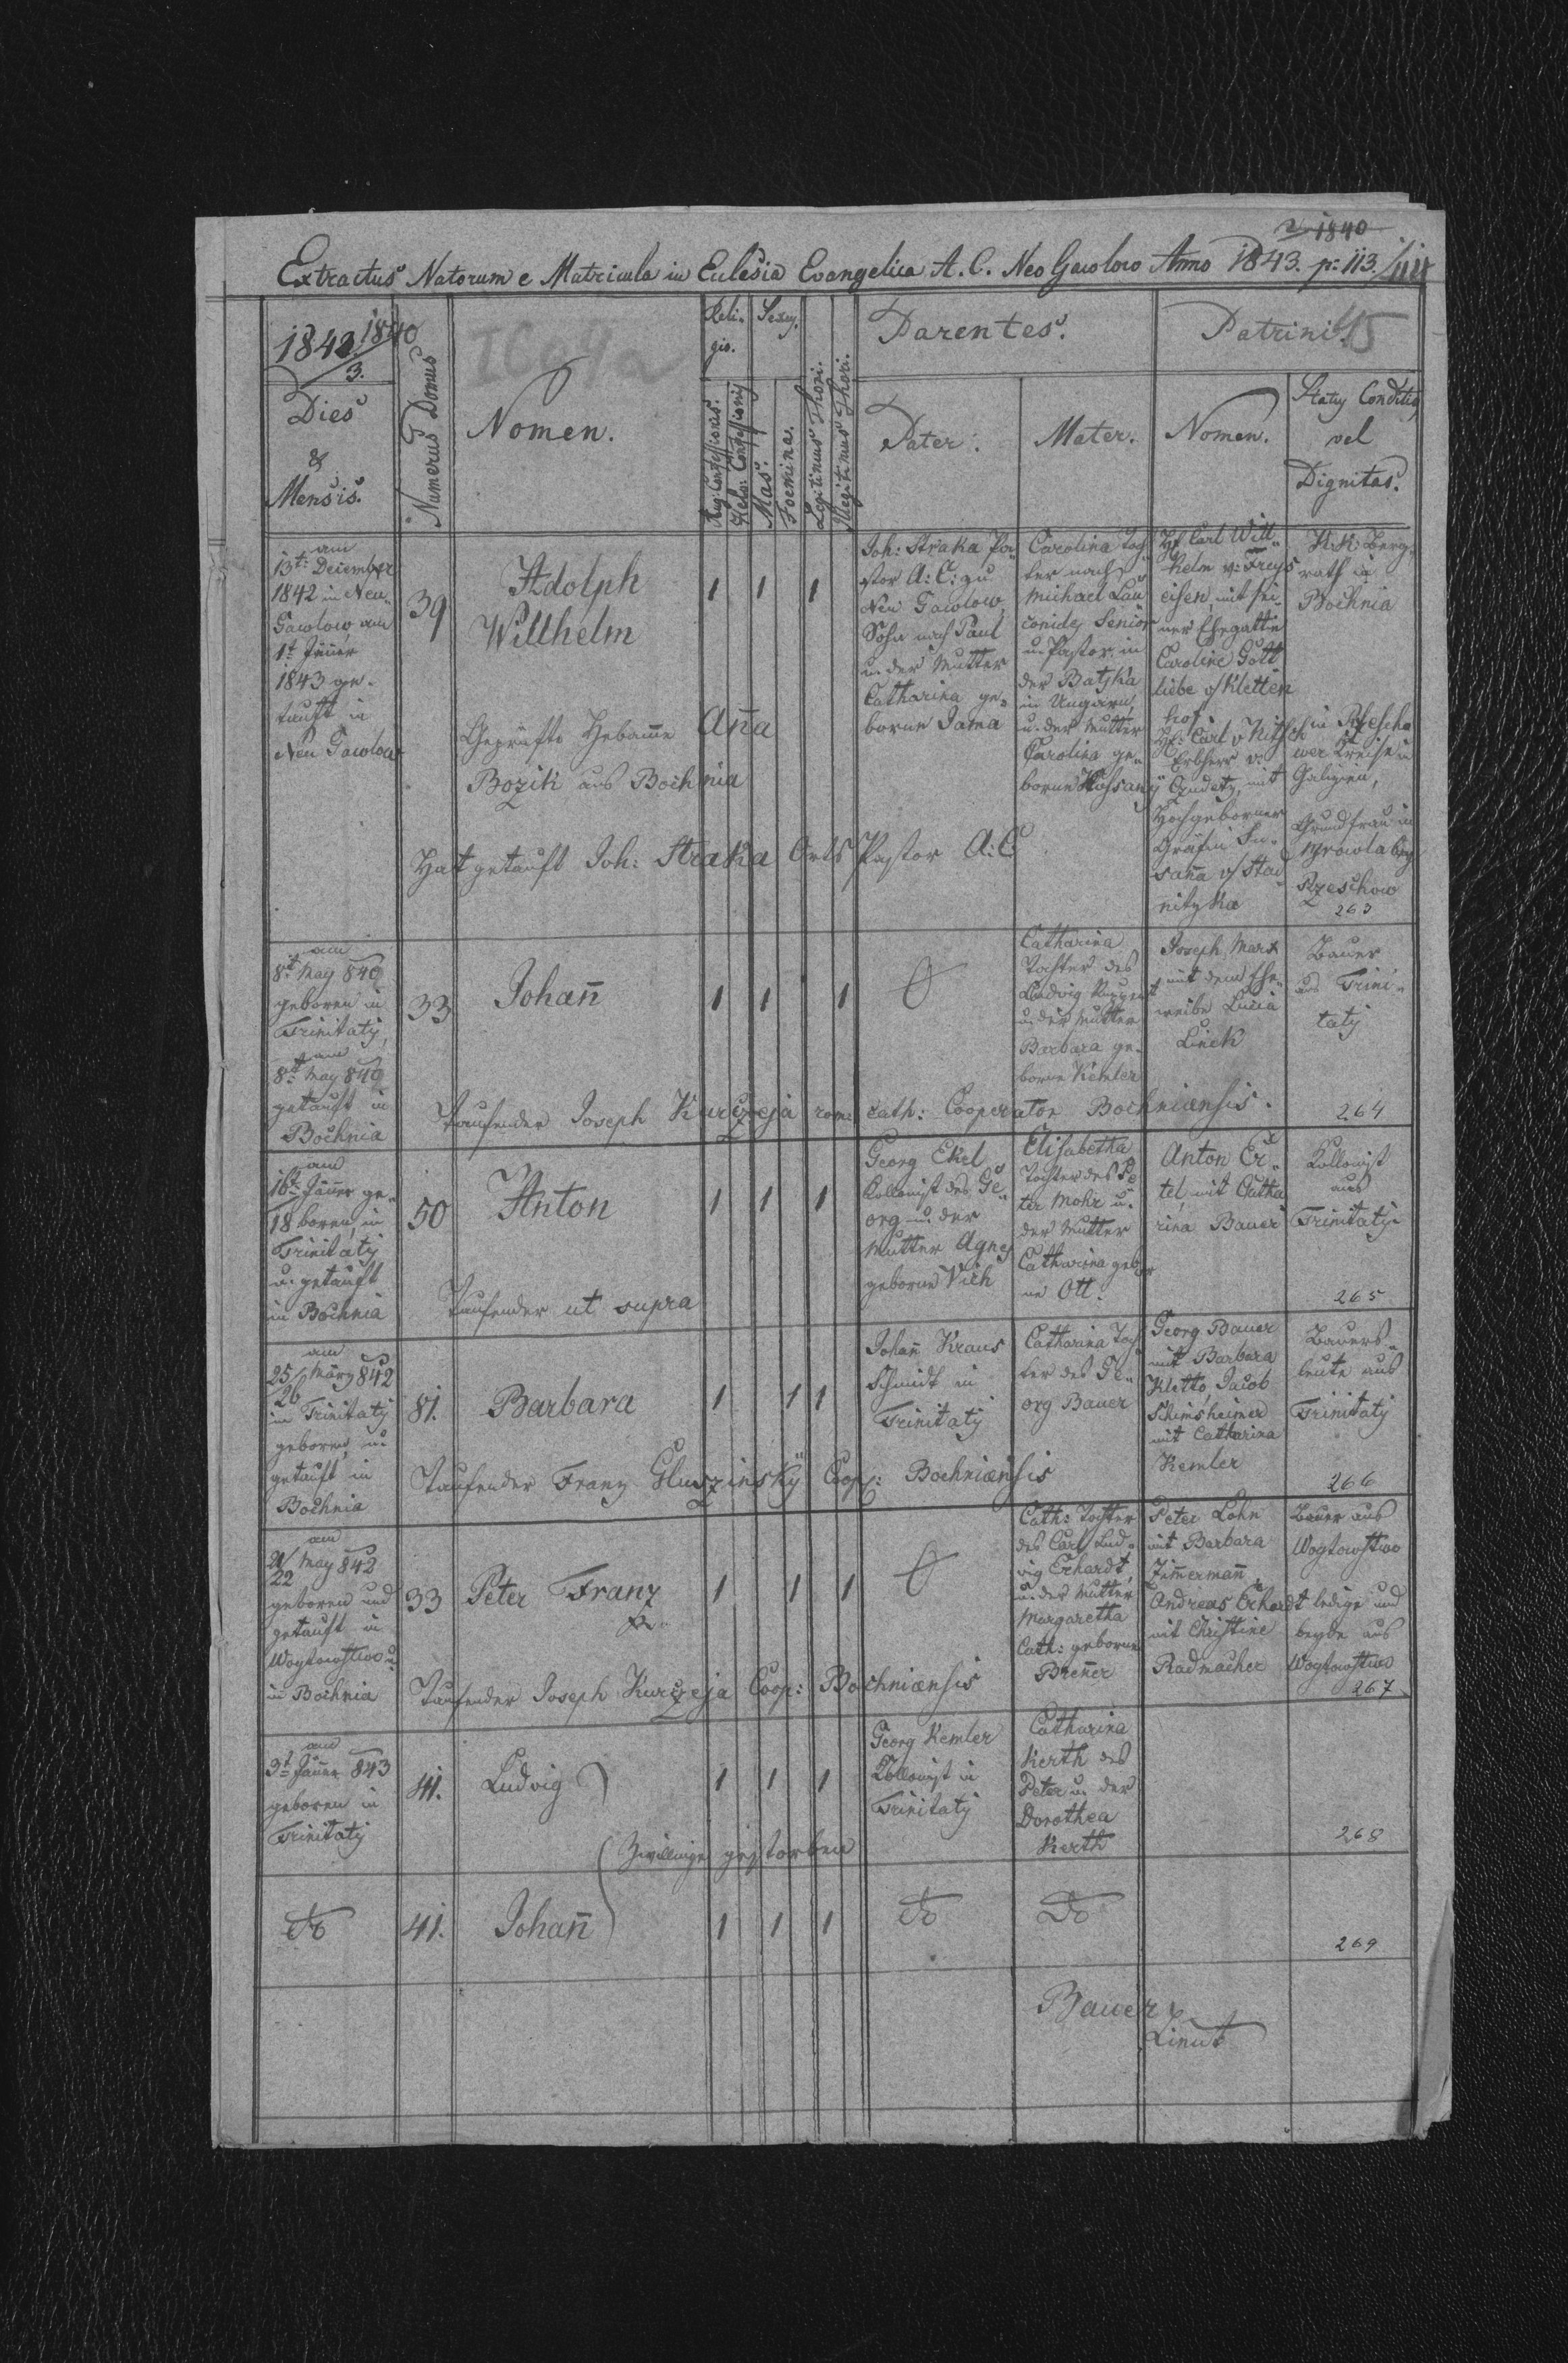 1840
Extractus Natorum e Matricula in Eclesia Evangelica A. C. Neo Gawlow Anno 1843. p: 113.
1842 1840
3.
Dies
&
Mensis.
Numerus Domus
Nomen.
Reli-
gio.
Sexus.
Aug: Confessionis.
Helv: Confessionis
Mas.
Foemina.
Legitimus Thori.
Illegitimus Thori.
Parentes.
Pater.
Mater.
Patrini.
45
Nomen.
Status Conditio,
vel
Dignitas.
am
13t December
1842 in Neu
Gawlow am
1t Jäner
1843 ge-
tauft in
Neu Gawlow
39
Adolph
Willhelm
Geprüfte Hebame Ana
Bozik aus Bochnia
Hat getauft Joh: Straka Orts Pastor A: C
1 1 1
Joh: Straka Pa-
stor A: C: zu
Neu Gawlow,
Sohn nach Paul
u. der Mutter
Catharina ge-
borne Jama
Carolina Toch
ter nach
Michael Lau
conides Senior
u. Pastor in
der Batska
in Ungarn,
u. der Mutter
Carolina ge-
borne
H Carl Will-
helm v: Freys
eisen, mit sei-
ner Ehegattin
Caroline Gott
liebe v Kletten
hof
H: Carl v
Erbherr v:
mit
Hochgeborner
Gräfin Su-
sana v Stad
nitzka
K: K: Berg-
rath in
Bochnia
in Rzescho
wer Kreise in
Galizien,
Grundfrau in
Mrowla bey
Rzeschow
263
am
8t May 840
geboren in
Trinitatis,
am
8t May 840
getauft in
Bochnia
33
Johan
1 1 1
Catharina
Tochter des
Ludvig
u. der Mutter
Barbara ge-
borne Kemler
Joseph Marx
mit dem Ehe-
weibe Lucia
Linek
Bauer
aus Trini-
tatis
Taufender Joseph Kurczeja rom: cath: Cooperator Bochniensis.
264
am
16t Jäner ge-
18 boren, in
Trinitatis
u. getauft
in Bochnia
50
Anton
Taufender ut supra
1 1 1
Georg Ekel
Kollonist des Ge-
org u. der
Mutter Agnes
geborne Vich
Elisabetha
Tochter des Pe
ter Mohr u.
der Mutter
Catharina gebor
ne Ott.
Anton Er-
tel, mit Catha
rina Bauer
Kollonist
aus
Trinitatis
265
am
25/ März 842
26
in Trinitatis
geboren, u.
getauft in
Bochnia
81.
Barbara
1 1 1
Johan Kraus
Schmidt in
Trinitatis
Catharina Toch
ter des Ge-
org Bauer
Georg Bauer
mit Barbara
Kletto, Jacob
Schimsheimer
mit Catharina
Kemler
Bauers-
leute aus
Trinitatis
Taufender Franz Gluszinsky Coop: Bochniensis
266
am
21/ May 842
22
geboren und
getauft in
Wogtowstwo u.
in Bochnia
33
Peter Franz
1 1 1
Cath: Tochter
des Carl Lud-
vig Erhardt,
u. der Mutter
Margaretha
Cath: geborne
Brener
Peter Lohn
mit Barbara
Zimerman,
Andreas Erhardt
mit Christine
Radmacher
Bauer aus
Wogtowstwo
ledige und
beyde aus
Wogtowstwo
Taufender Joseph Kurczeja Coop: Bochniensis
267
am
3t Jäner 843
geboren in
Trinitatis
41.
Ludvig
1 1 1
Georg Kemler
Kollonist in
Trinitatis
Catharina
Kerth des
Peter u. der
Dorothea
Kerth
268
Zwillinge gestorben
do
41.
Johan
1 1 1
do
do
269
Bauer